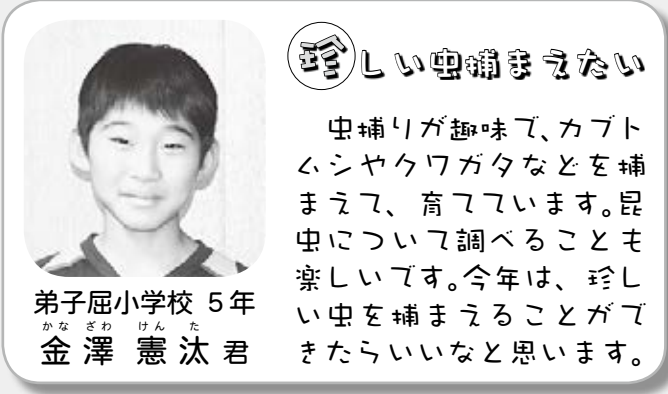 珍しい虫捕まえたい
虫捕りが趣味で、カブト
ムシやクワガタなどを捕
まえて、育てています。昆
虫について調べることも
楽しいです。今年は、珍し
い虫を捕まえることがで
きたらいいなと思います。
弟子屈小学校 5年
かな ざわ けん た
金澤 憲汰 君